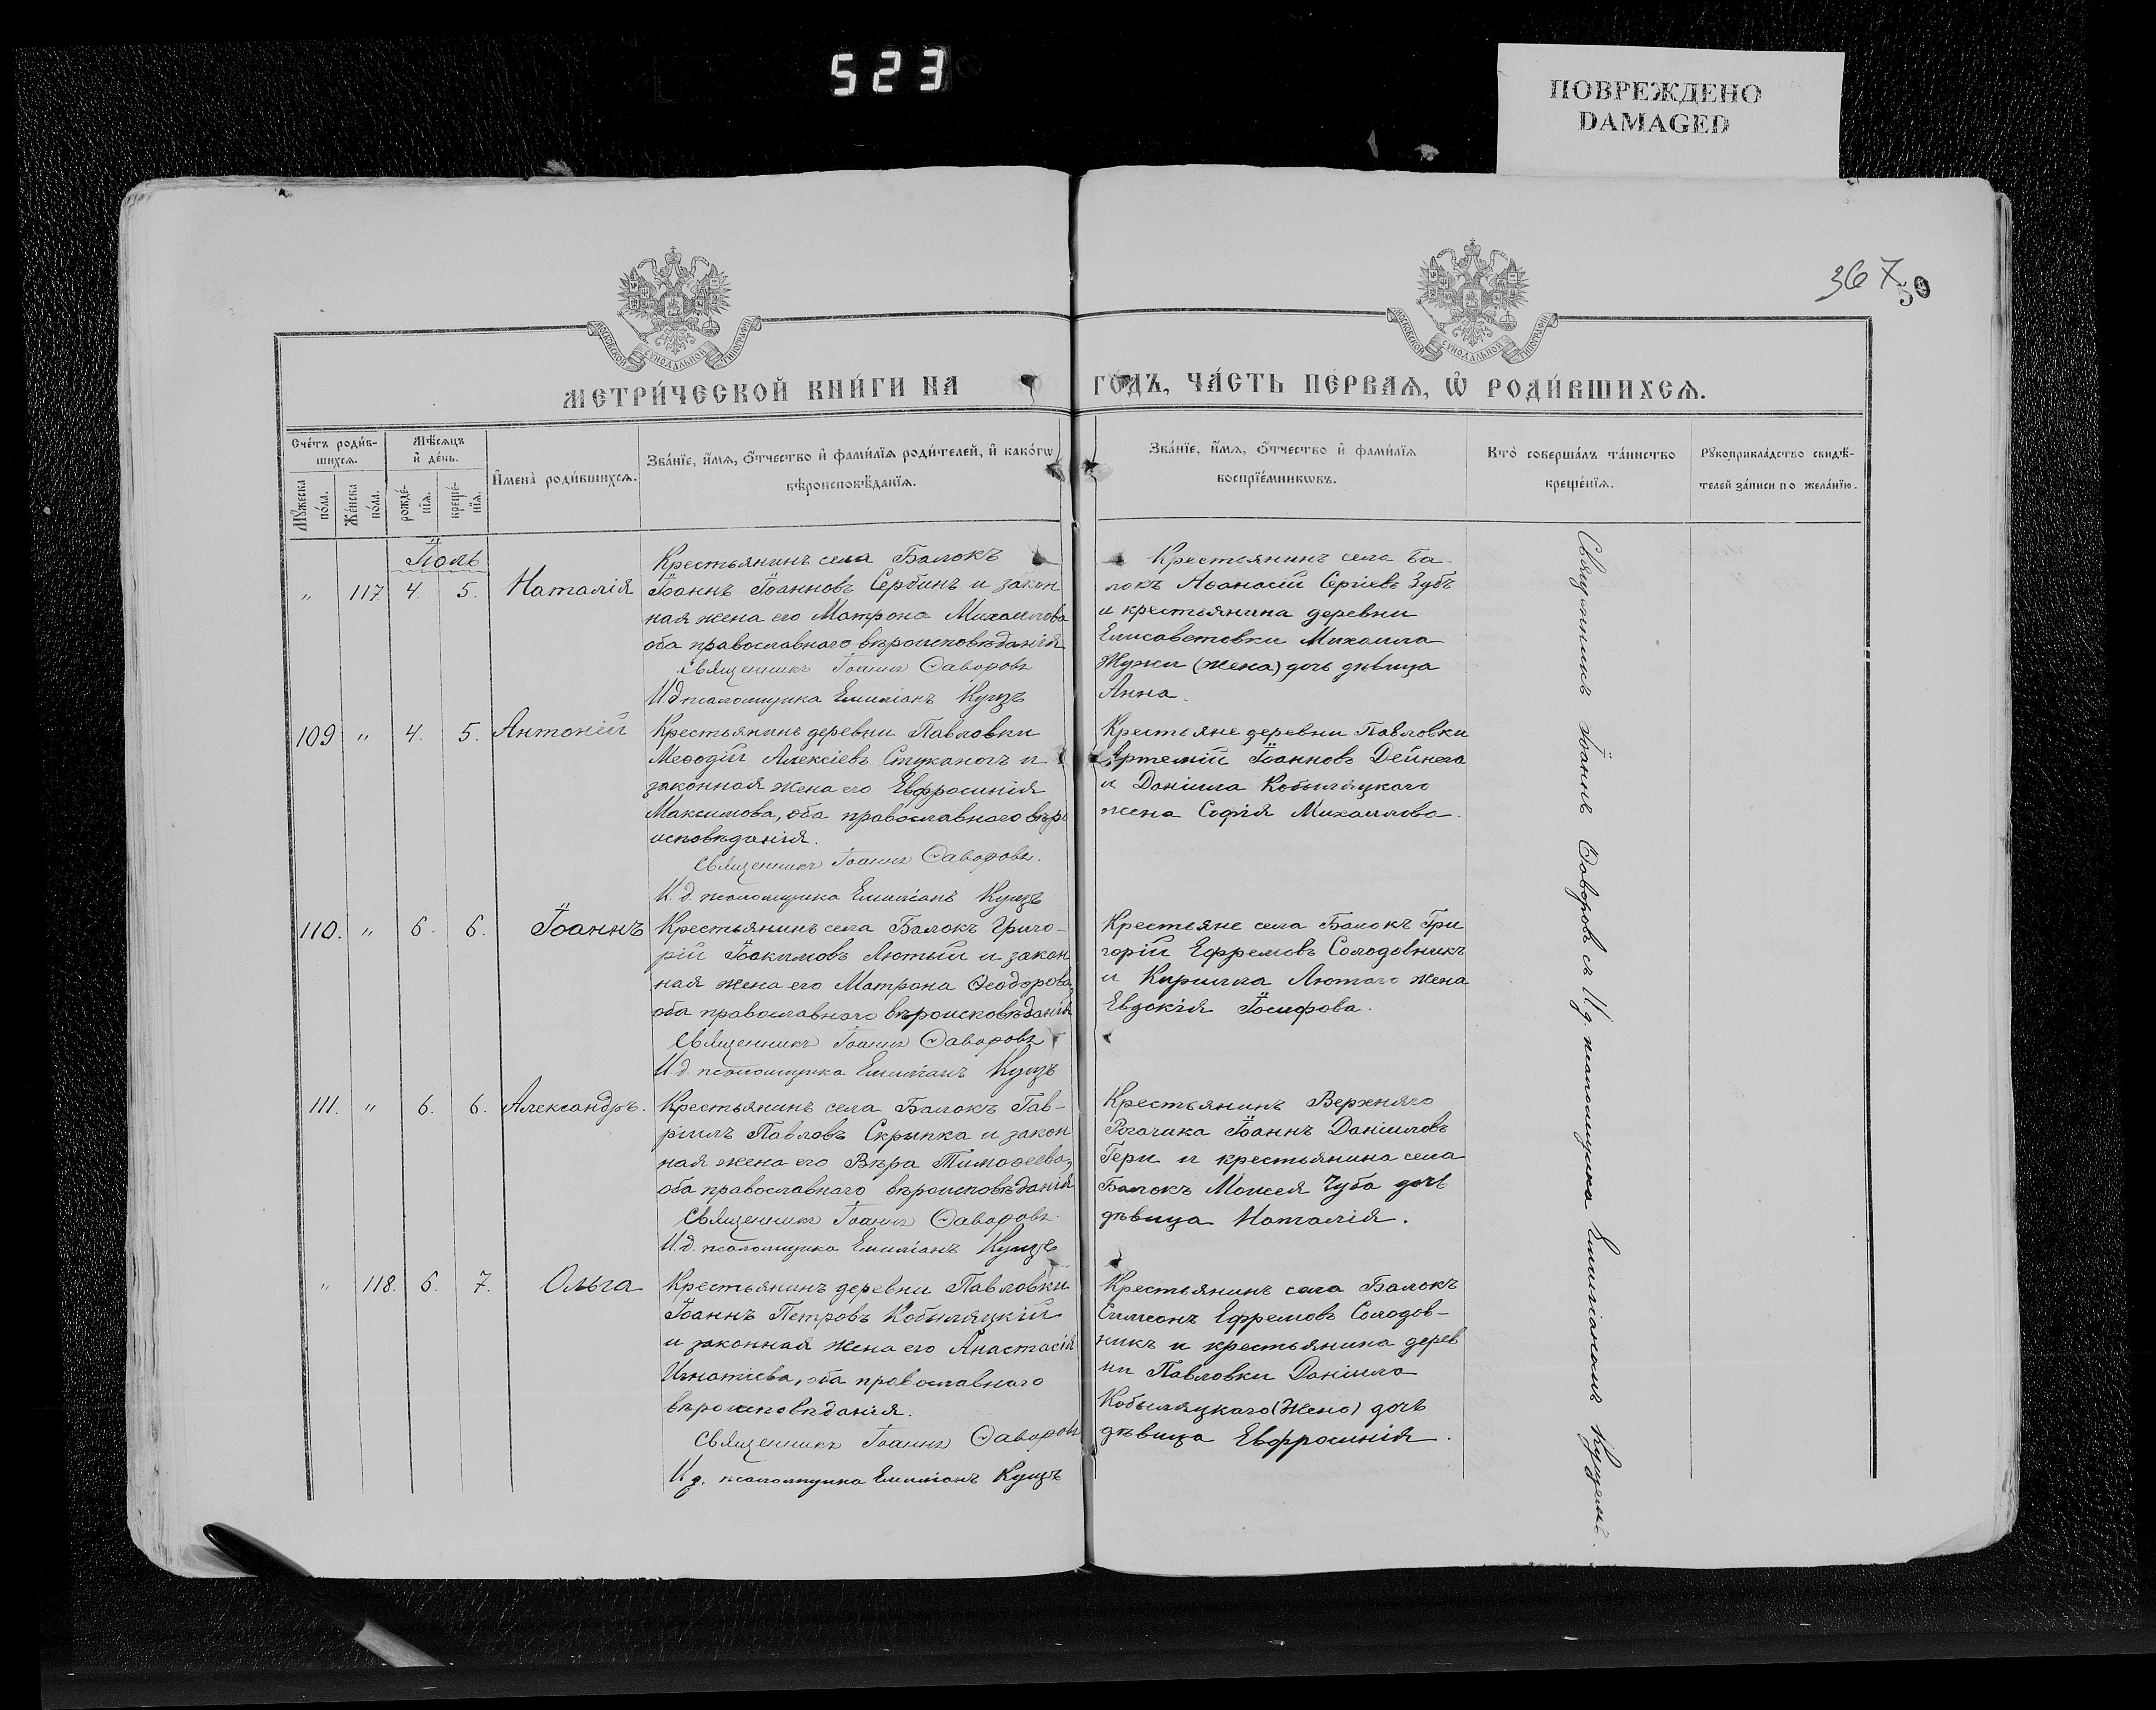 523
ПОВРЕЖДЕНО
DAMAGED
367
50
МОСКОВСКОЙ СѴНОДАЛЬНОЙ ТИПОГРАФІИ
МОСКОВСКОЙ СѴНОДАЛЬНОЙ ТИПОГРАФІИ
МЕТРИ́ЧЕСКОЙ КНИ́ГИ НА ГОДЪ, ЧА́СТЬ ПЕ́РВАѦ, Ѡ РОДИ́ВШИХСѦ.
Сче́тъ роди́в-
шихсѧ.
Мѣ́сѧцъ
и҆ де́нь.
Мꙋ́жеска
по́ла.
Же́нска
по́ла.
рожде́-
нїѧ.
креще́-
нїѧ.
И҆мена̀ роди́вшихсѧ.
Зва́нїе, и҆́мѧ, ѻ҆́тчество и҆ фами́лїѧ роди́телей, и҆ како́гѡ
вѣроисповѣ́данїѧ.
Зва́нїе, и҆́мѧ, ѻ҆́тчество и҆ фами́лїѧ
воспрїе́мникѡвъ.
Кто̀ соверша́лъ та́инство
креще́нїѧ.
Рꙋкоприкла́дство свидѣ́-
телей за́писи по жела́нїю.
Іюль
" 117. 4. 5. Наталія
Крестьянинъ села Балокъ
Іоаннъ Іоанновъ Сербинъ и закон
ная жена его Матрона Михаилова
оба православнаго вѣроисповѣданія
Священникъ Іоаннъ Ѳаворовъ
И д псаломщика Емиліанъ Кущъ
Крестьянинъ села Ба-
локъ Аѳанасій Сергіевъ Зубъ
и крестьянина деревни
Елисаветовки Михаила
Жужи (жена) дочь дѣвица
Анна.
109 " 4. 5. Антоній
Крестьянинъ деревни Павловки
Меѳодій Алексіевъ Стуканогъ и
законная жена его Евфросинія
Максимова, оба православнаго вѣро
исповѣданія.
Священникъ Іоаннъ Ѳаворовъ.
И. д. псаломщика Емиліанъ Кущъ
Крестьяне деревни Павловки
Артемій Іоанновъ Дейнега
и Даніила Кобыляцкаго
жена Софія Михаилова.
110. " 6. 6. Іоаннъ
Крестьянинъ села Балокъ Григо-
рій Іоакимовъ Лютый и закон
ная жена его Матрона Ѳеодорова,
оба православнаго вѣроисповѣданія
Священникъ Іоаннъ Ѳаворовъ
И.д. псаломщика Емиліанъ Кущъ
Крестьяне села Балокъ Гри
горій Ефремовъ Солодовникъ
и Кирилла Лютаго жена
Евдокія Іосифова.
111. " 6. 6. Александръ.
Крестьянинъ села Балокъ Гав-
ріилъ Павловъ Скрыпка и закон
ная жена его Вѣра Тимоѳеева,
оба православнаго вѣроисповѣданія
Священникъ Іоаннъ Ѳаворовъ
И.д. псаломщика Емиліанъ Кущъ
Крестьянинъ Верхняго
Рогачика Іоаннъ Даніиловъ
Гери и крестьянина села
Балокъ Моисея Чуба дочь
дѣвица Наталія.
" 118. 6. 7. Ольга
Крестьянинъ деревни Павловки
Іоаннъ Петровъ Кобыляцкій
и законная жена его Анастасія
Игнатіева, оба православнаго
вѣроисповѣданія.
Священникъ Іоаннъ Ѳаворовъ
И д. псаломщика Емиліанъ Кущъ
Крестьянинъ села Балокъ
Симеонъ Ефремовъ Солодов-
никъ и крестьянина дерев
ни Павловки Даніила
Кобыляцкаго (жена) дочь
дѣвица Евфросинія.
Священникъ Іоаннъ Ѳаворовъ съ И.д. псаломщика Емиліаномъ Кущемъ.